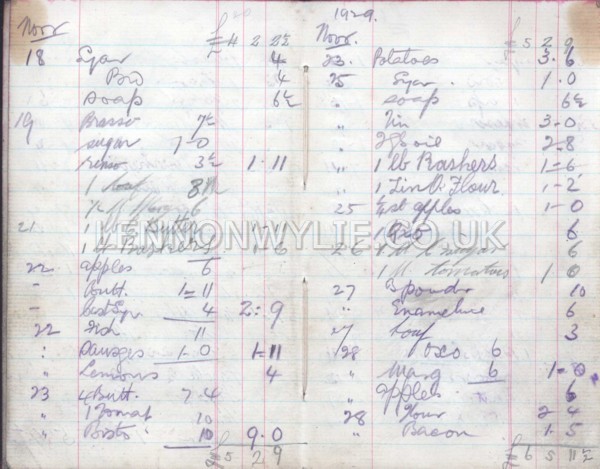 Novr £ 4 2 2½
18 Eggs 4
Bro 4
Soap 6½
19 Brasso 7½
sugar 1-0
Rinso 3½ 1-11
1 loaf 8
6
21 1-6
LENNONWYLIE.CO.UK
22 apples 6
" Butt. 1=11
" 4 2:9
22 Fish 11
" Sausges 1-0 1=11
" Lemons 4
23 4 Butt. 7-4
" 1 Tomat 10
" Bisto 10 9-0
£5 2 9
1929.
Novr. £ 5 2 9
23. Potatoes 3-6
25 Eggs. 1-0
" soap 6½
" Tin 3-0
" oil 2-8
" 1 lb Rashers 1=6
" 1 Tin O Flour 1-2
25 apples 1-0
" 6
26 sugar 6
1 lb tomatoes 1 0
27 B powder 10
" Enameline 6
27 Soup 3
28 oxo 6
" Marg 6 1-0
apples. 6
28 Flour 2-4
" Bacon 1-5
£6 5 11½